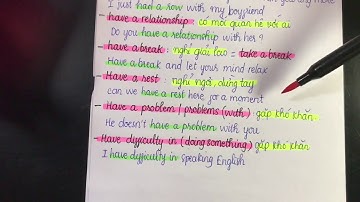 I just had a row with my boyfriend
- have a relationship : có mối quan hệ với ai
Do you have a relationship with her ?
- have a break : nghỉ giải lao = take a break
Have a break and let your mind relax
- Have a rest : nghỉ ngơi, dừng tay
can we have a rest here for a moment
- Have a problem / problems (with) : gặp khó khăn
He doesn't have a problem with you
- Have difficulty in (doing something) : gặp khó khăn
I have difficulty in speaking English